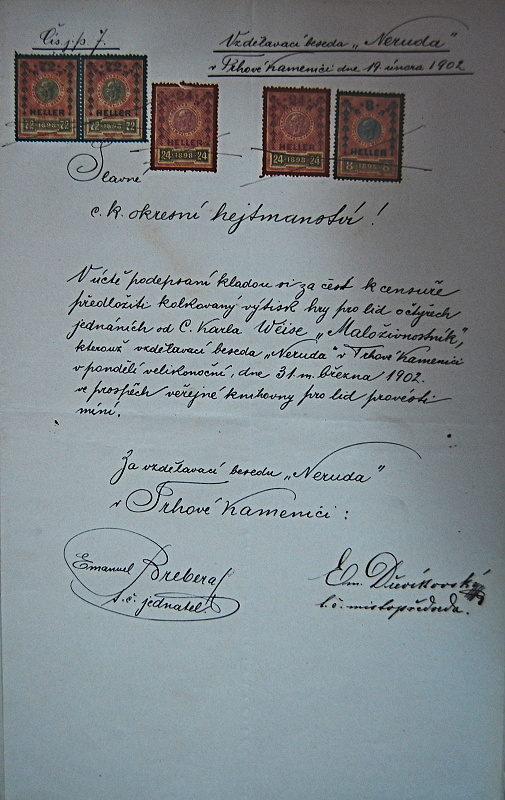 Čís. j. p. 7.
Vzdělavací beseda „Neruda"
v Trhové Kamenici dne 19. února 1902
72 72
HELLER HELLER
72 1898 72 72 1898 72
24
HELLER
24 1898 24
24
HELLER
24 1898 24
8
HELLER
8 1898 8
Slavné
c. k. okresní hejtmanství!
V úctě podepsaní kladou si za čest k censuře
předložiti kolkovaný výtisk hry pro lid o čtyřech
jednáních od C. Karla Weise „Maloživnostník",
kterouž vzdělavací beseda „Neruda" v Trhové Kamenici
v pondělí velikonoční, dne 31. m. března 1902.
ve prospěch veřejné knihovny pro lid provésti
míní.
Za vzdělavací besedu „Neruda"
v Trhové Kamenici:
Emanuel Brebera
t. č. jednatel.
Em. Dřevíkovský
t. č. místopředseda.